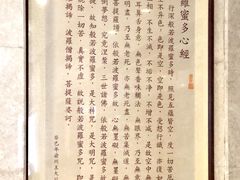 羅蜜多心經
行深般若波羅蜜多時。照見五蘊皆空。度一切苦
不異色。色即是空。空即是色。受想行識。亦
相。不生不滅。不垢不淨。不增不減。是故空中
耳鼻舌身意。無色聲香味觸法。無眼界。乃至無
盡。乃至無老死。亦無老死盡。無苦
菩提薩埵。依般若波羅蜜多故。心無罣礙。無罣
倒夢想。究竟涅槃。三世諸佛。依般若波羅蜜多
故知般若波羅蜜多。是大神咒。是大明咒。是
除一切苦。真實不虛。故說般若波羅蜜多
揭諦。波羅僧揭諦。菩提薩婆訶。
癸巳年